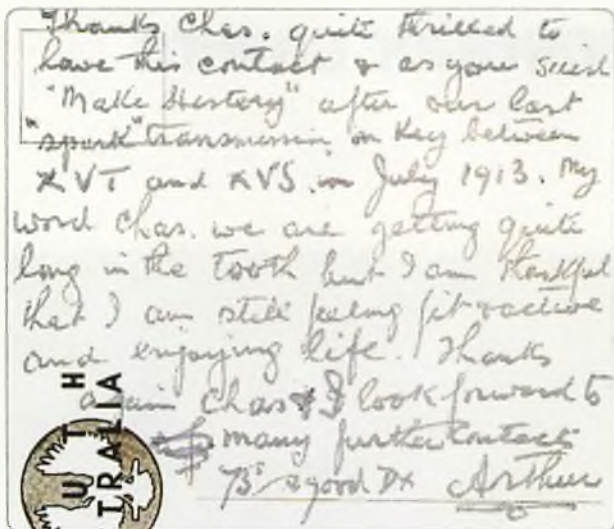 Thanks Chas. quite thrilled to
have this contact & as you said
"Make History" after our last
"spark" transmission on Key between
XVT and XVS in July 1913. My
word Chas. we are getting quite
long in the tooth but I am thankful
that I am still feeling fit & active
and enjoying life. Thanks
again Chas & I look forward to
many further contacts
73's & good DX Arthur
U T H
TRALIA